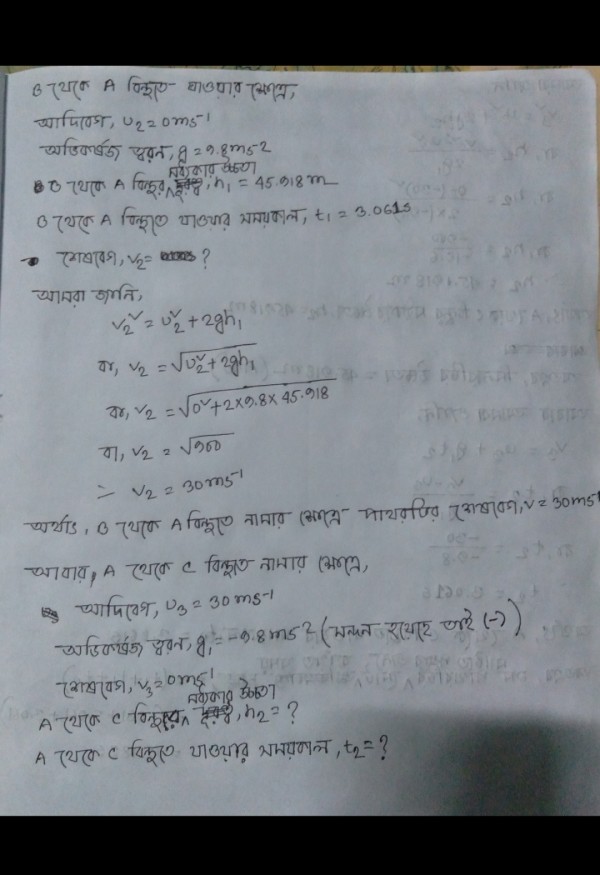 B থেকে A বিন্দুতে যাওয়ার ক্ষেত্রে,
আদিবেগ, u₂ = 0 ms⁻¹
অভিকর্ষজ ত্বরন, g = 9.8 ms⁻²
মধ্যকার উচ্চতা
B থেকে A বিন্দুর, h₁ = 45.918 m
B থেকে A বিন্দুতে যাওয়ার সময়কাল, t₁ = 3.061s
শেষবেগ, v₂ = ?
আমরা জানি,
v₂² = u₂² + 2gh₁
বা, v₂ = √u₂² + 2gh₁
বা, v₂ = √0² + 2×9.8×45.918
বা, v₂ = √900
∴ v₂ = 30 ms⁻¹
অর্থাৎ, B থেকে A বিন্দুতে নামার ক্ষেত্রে পাথরটির শেষবেগ, v = 30 ms⁻¹
আবার, A থেকে C বিন্দুতে নামার ক্ষেত্রে,
আদিবেগ, u₃ = 30 ms⁻¹
অভিকর্ষজ ত্বরন, g, = -9.8 ms⁻² (মন্দন হয়েছে তাই (-))
শেষবেগ, v₃ = 0 ms⁻¹
মধ্যকার উচ্চতা
A থেকে C বিন্দুর, h₂ = ?
A থেকে C বিন্দুতে যাওয়ার সময়কাল, t₂ = ?